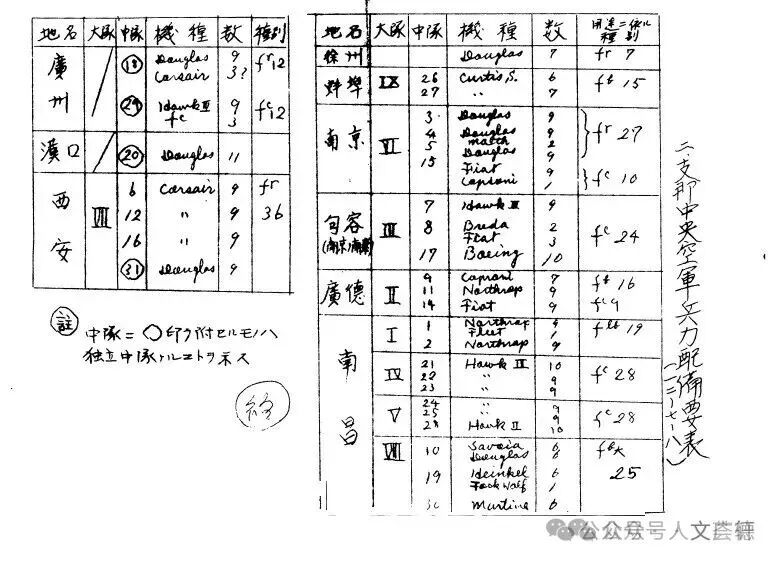 二、支那中央空軍兵力配備要表
(一二-七-八)
地名 大隊 中隊 機種 数 用途ニ依ル種別
徐州 Douglas 7 fr 7
蚌埠 IX 26 Curtis, S. 6 fb 15
27 〃 7
南京 VI 3 Douglas 9 fr 27
4 Douglas 9
5 2
15 Douglas 9
Fiat 9 fc 10
Caproni 1
句容 III 7 Hawk III 9 fc 24
8 Breda 2
Fiat 3
17 Boeing 10
廣德 II 9 Caproni 7 fb 16
11 Northrop 9
14 Fiat 9 fc 9
南昌 I 1 Northrop 9 19
Fleet 1
2 Northrop 9
IV 21 Hawk III 10 fc 28
22 〃 9
23 〃 9
V 24 〃 9 fc 28
25 〃 9
28 Hawk II 10
VIII 10 Savoia 6
Douglas 6 25
19 Heinkel 6
Fock Wolf 1
30 Martine 6
地名 大隊 中隊 機種 数 種別
廣州 18 Douglas 9 fr 12
Corsair 3?
29 Hawk III 9 fc 12
fc 3
漢口 20 Douglas 11
西安 VII 6 Corsair 9 fr
12 〃 9 36
16 〃 9
31 Douglas 9
註
中隊ニ○印ヲ附セルモノハ
独立中隊ナルコトヲ示ス
公众号人文荟